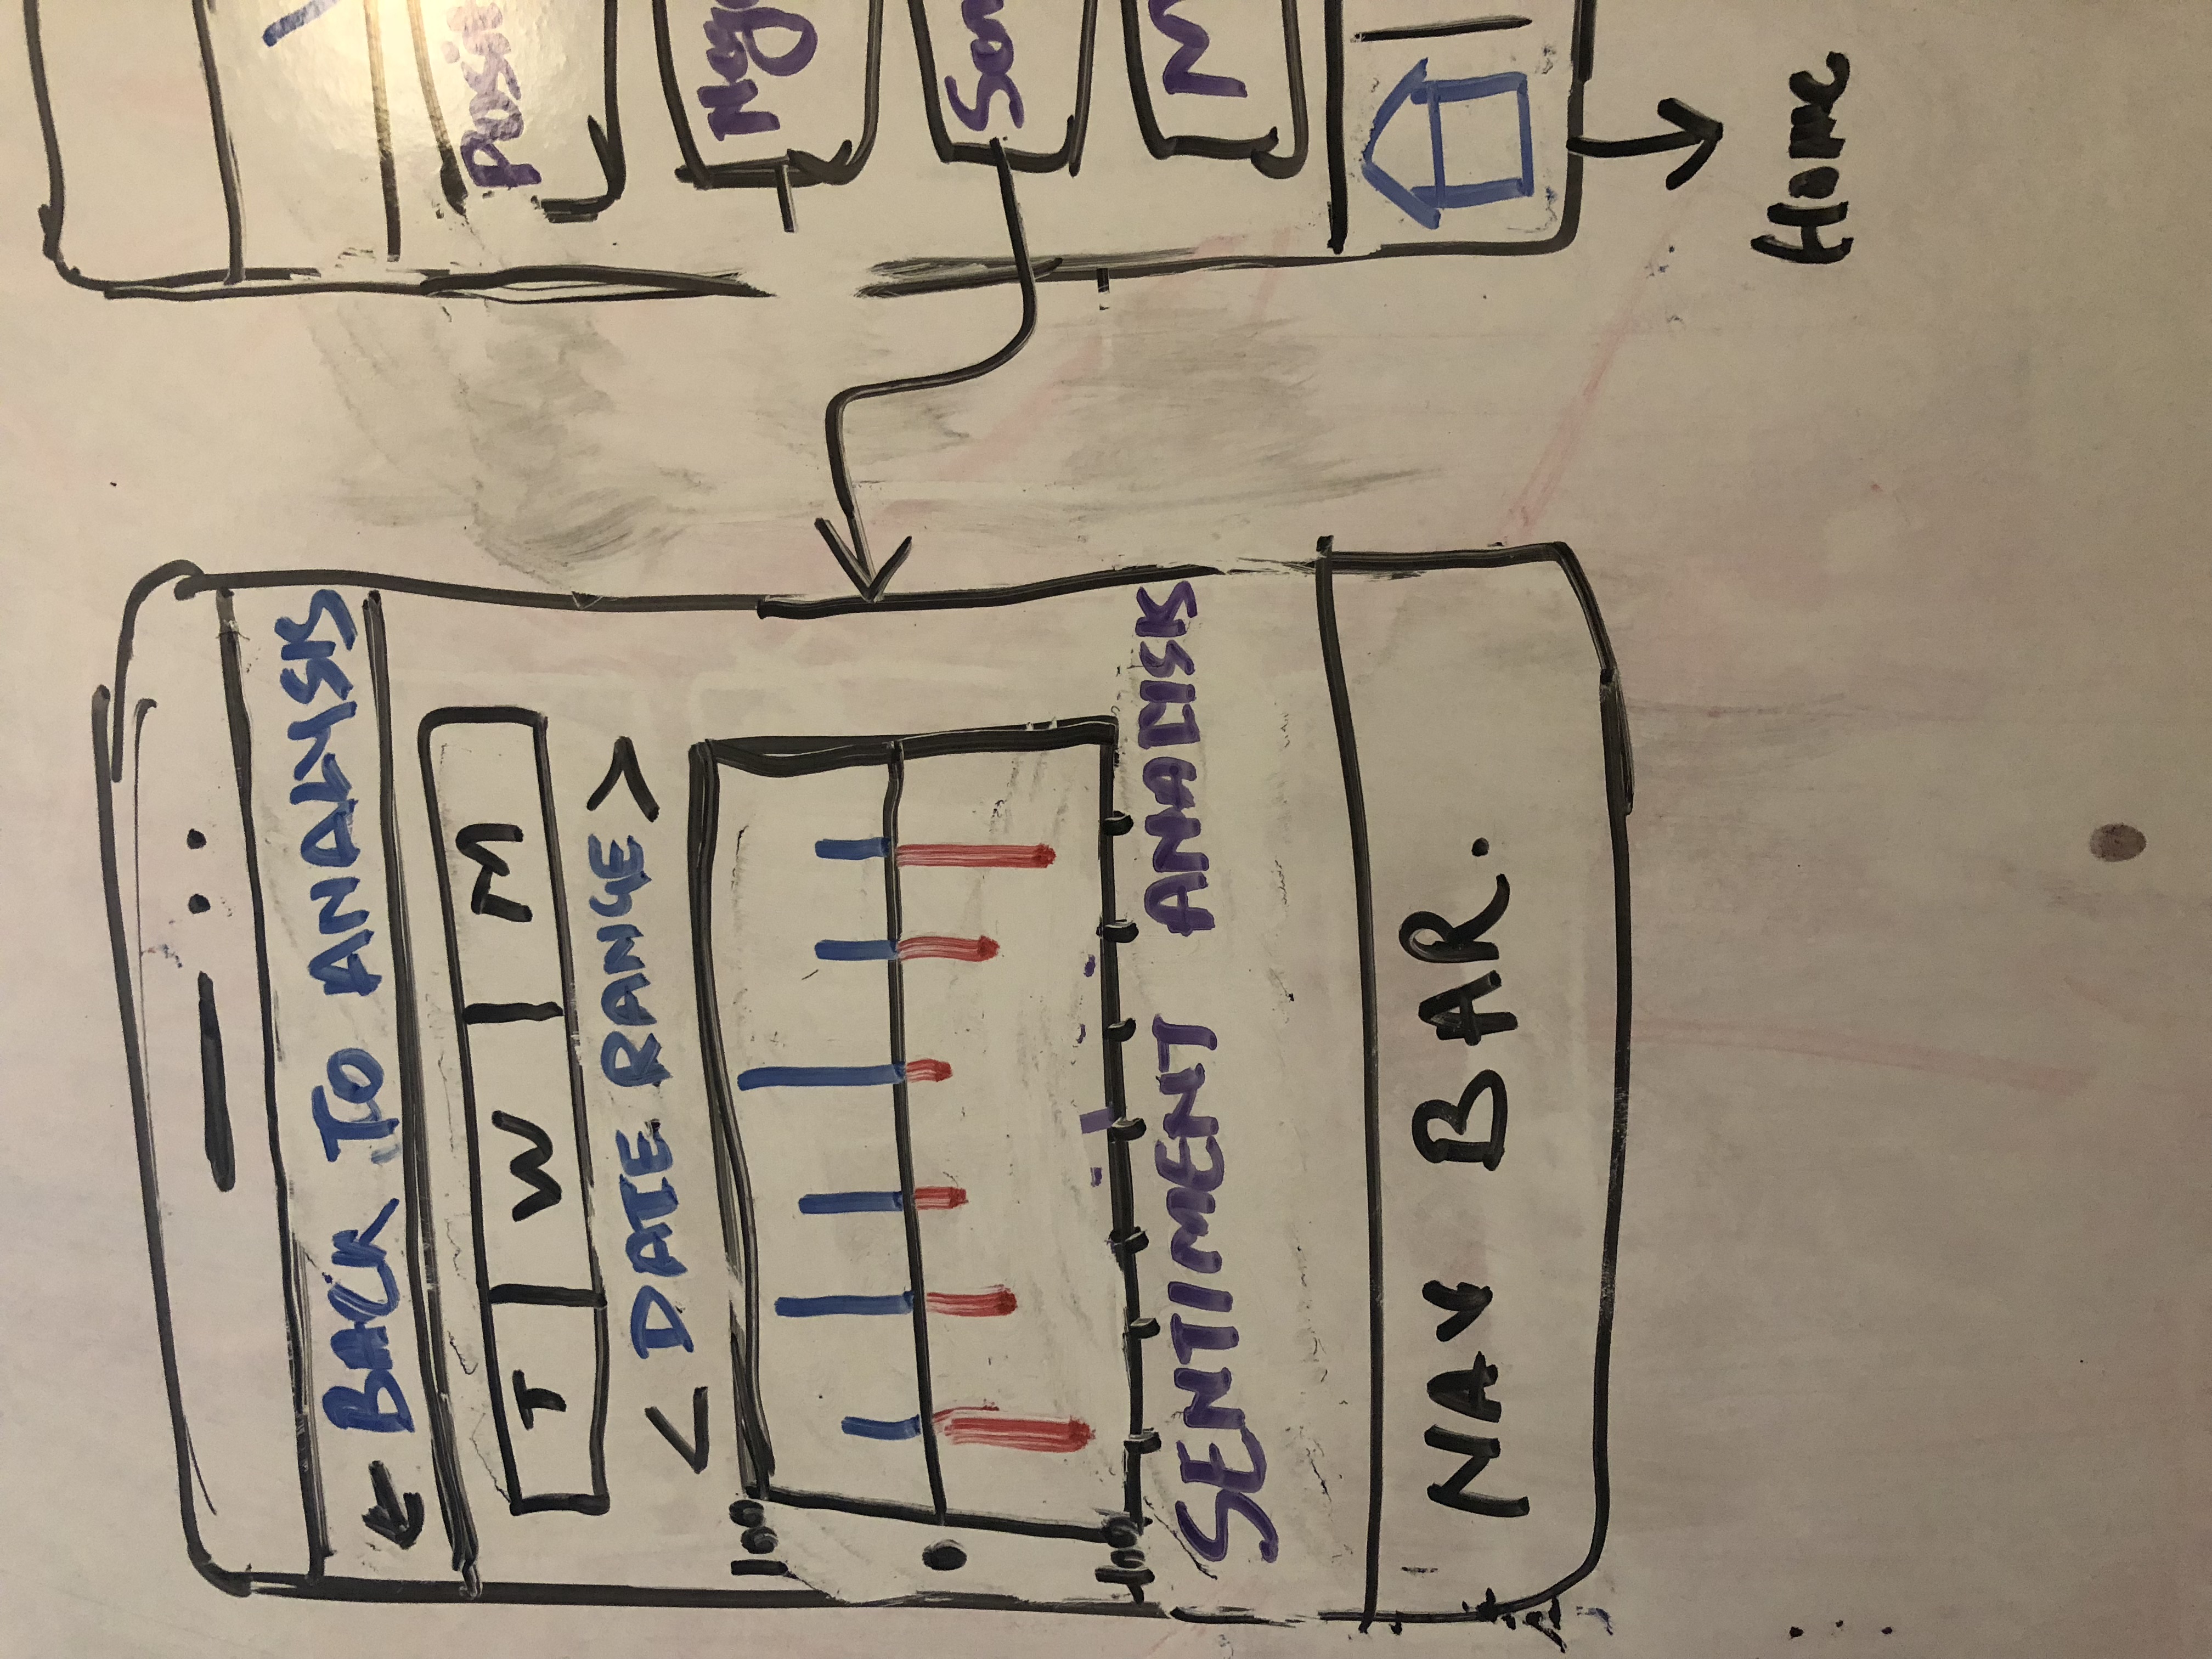 ← BACK TO ANALYSIS
T W M
< DATE RANGE >
100
0
-100
SENTIMENT ANALYSIS
NAV BAR.
Posit
Nega
Sen
M
Home